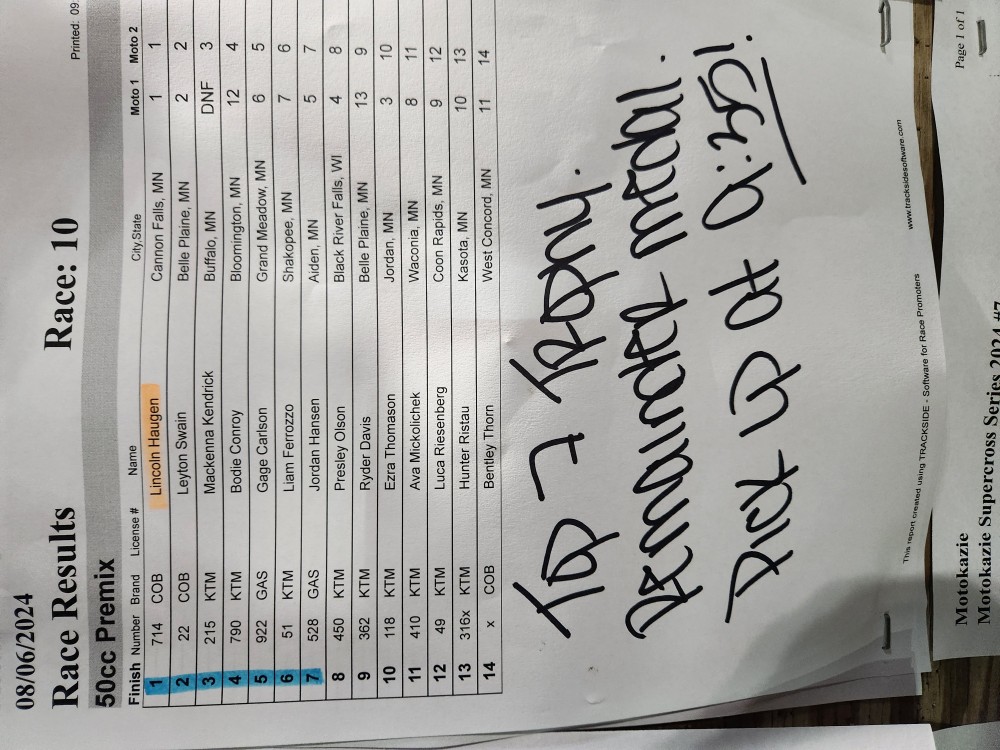 08/06/2024
Printed: 09
Race Results Race: 10
50cc Premix
Finish Number Brand License # Name City,State Moto 1 Moto 2
1 714 COB Lincoln Haugen Cannon Falls, MN 1 1
2 22 COB Leyton Swain Belle Plaine, MN 2 2
3 215 KTM Mackenna Kendrick Buffalo, MN DNF 3
4 790 KTM Bodie Conroy Bloomington, MN 12 4
5 922 GAS Gage Carlson Grand Meadow, MN 6 5
6 51 KTM Liam Ferrozzo Shakopee, MN 7 6
7 528 GAS Jordan Hansen Aiden, MN 5 7
8 450 KTM Presley Olson Black River Falls, WI 4 8
9 362 KTM Ryder Davis Belle Plaine, MN 13 9
10 118 KTM Ezra Thomason Jordan, MN 3 10
11 410 KTM Ava Mickolichek Waconia, MN 8 11
12 49 KTM Luca Riesenberg Coon Rapids, MN 9 12
13 316x KTM Hunter Ristau Kasota, MN 10 13
14 x COB Bentley Thorn West Concord, MN 11 14
TOP 7 TROPHY.
REMAINDER MEDAL.
PICK UP At
This report created using TRACKSIDE - Software for Race Promoters www.tracksidesoftware.com
Motokazie Page 1 of 1
Motokazie Supercross Series 2024 #7